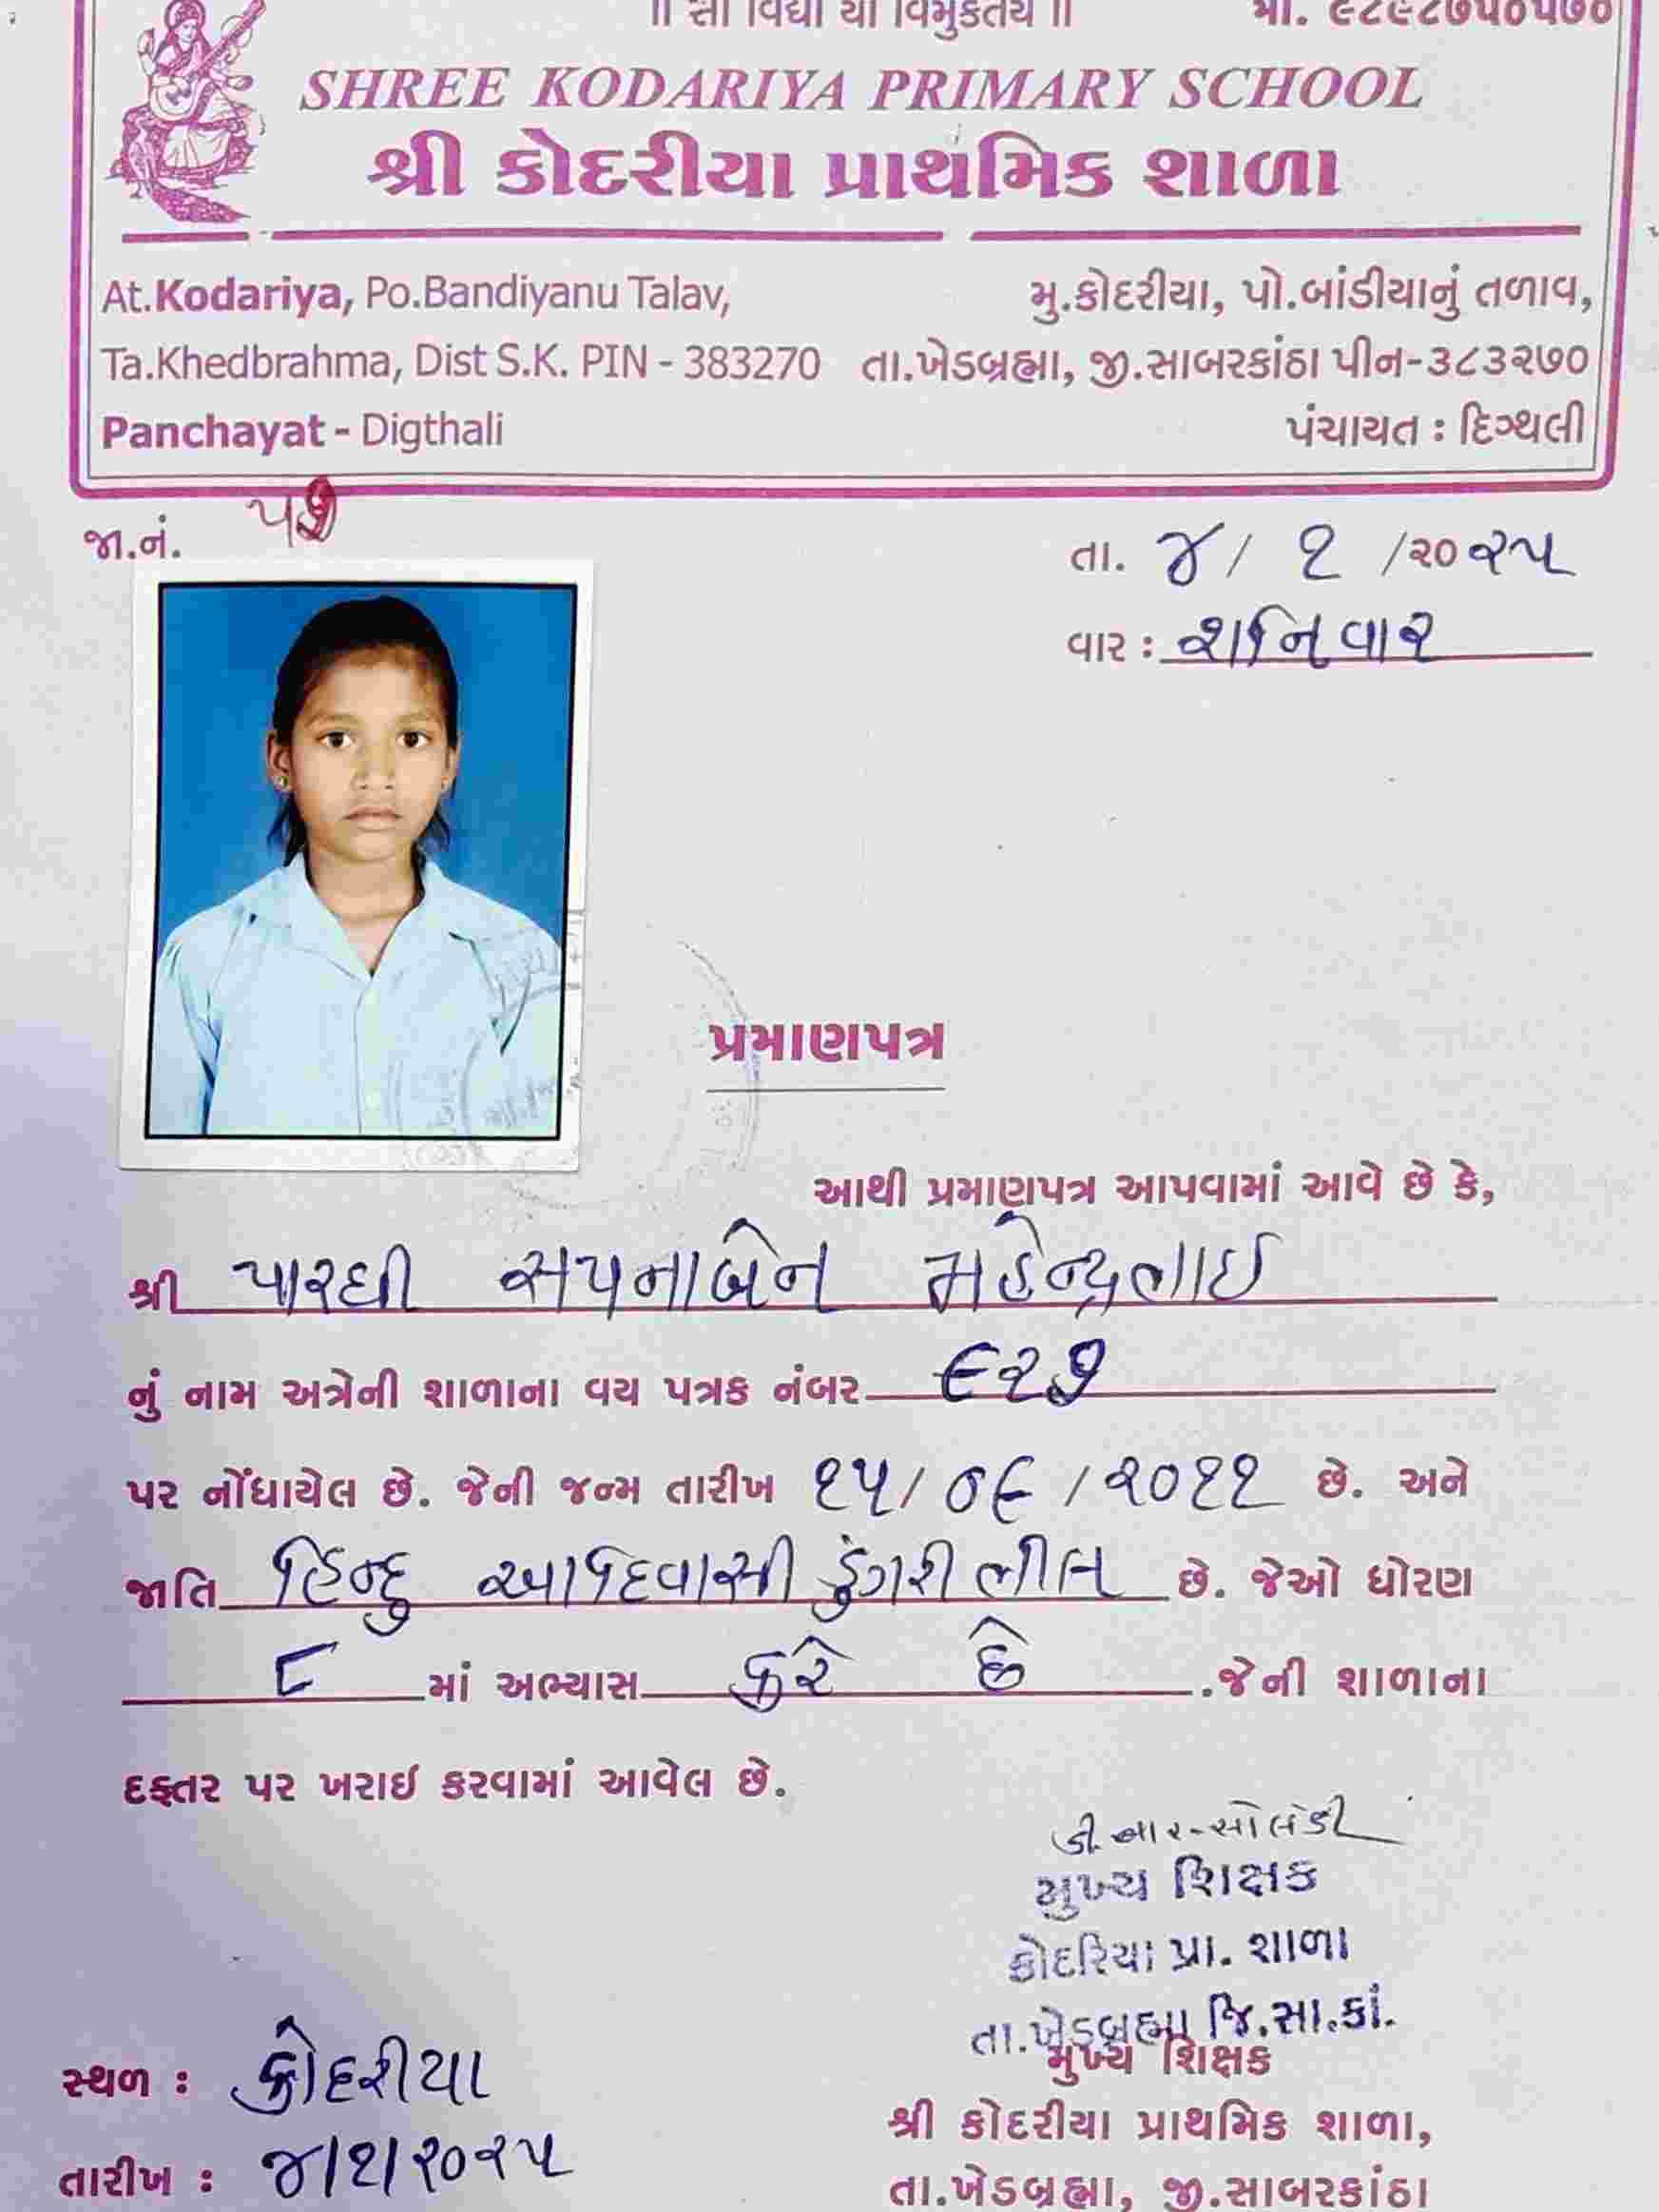 ॥ સા વિદ્યા યા વિમુક્તયે ॥ મો. ૯૮૯૮૭૫૦૫૭૦
SHREE KODARIYA PRIMARY SCHOOL
શ્રી કોદરીયા પ્રાથમિક શાળા
At.Kodariya, Po.Bandiyanu Talav, મુ.કોદરીયા, પો.બાંડીયાનું તળાવ,
Ta.Khedbrahma, Dist S.K. PIN - 383270 તા.ખેડબ્રહ્મા, જી.સાબરકાંઠા પીન-૩૮૩૨૭૦
Panchayat - Digthali પંચાયત : દિગ્થલી
જા.નં. ૫૭
તા. ૪/ ૧ /૨૦૨૫
વાર : શનિવાર
પ્રમાણપત્ર
આથી પ્રમાણપત્ર આપવામાં આવે છે કે,
શ્રી પારઘી સપનાબેન મહેન્દ્રભાઇ
નું નામ અત્રેની શાળાના વય પત્રક નંબર ૯૨૭
પર નોંધાયેલ છે. જેની જન્મ તારીખ ૧૫/ ૦૯ /૨૦૧૧ છે. અને
જાતિ હિન્દુ આદિવાસી ડુંગરી ભીલ છે. જેઓ ધોરણ
૮ માં અભ્યાસ કરે છે .જેની શાળાના
દફ્તર પર ખરાઇ કરવામાં આવેલ છે.
ડી.આર.સોલંકી
મુખ્ય શિક્ષક
કોદરિયા પ્રા. શાળા
તા.ખેડબ્રહ્મા જિ.સા.કાં.
મુખ્ય શિક્ષક
સ્થળ : કોદરીયા
શ્રી કોદરીયા પ્રાથમિક શાળા,
તારીખ : ૪/૧/૨૦૨૫
તા.ખેડબ્રહ્મા, જી.સાબરકાંઠા